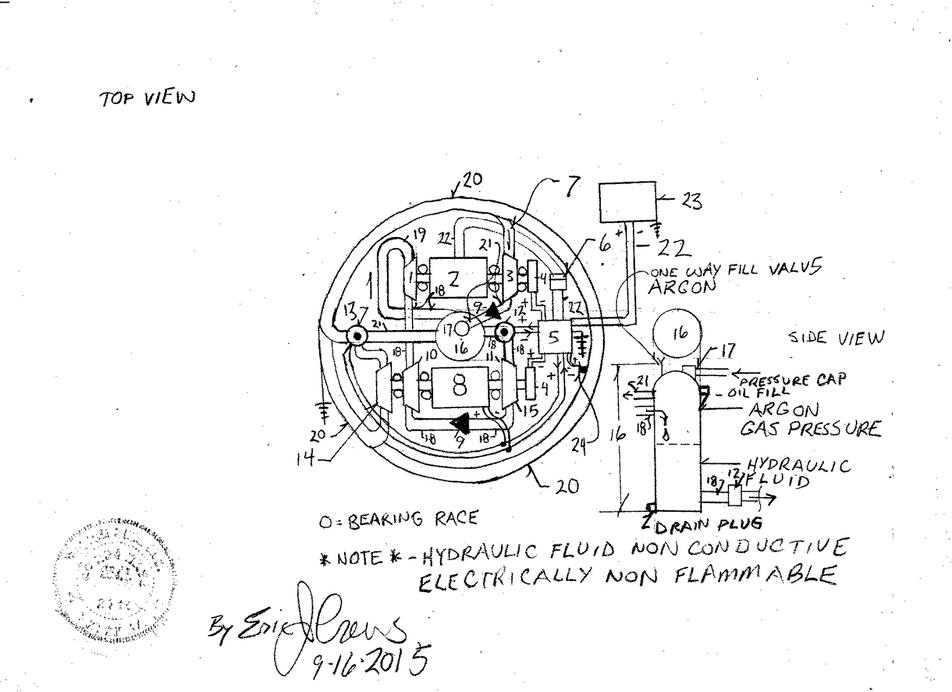 TOP VIEW
20
7
23
+ -
22
6
19
22
21
ONE WAY FILL VALV5
ARGON
1
1
2
3
4
18
22
9
12
13
21
17
16
5
16
SIDE VIEW
18
18
18
17
10
11
PRESSURE CAP
8
4
21
OIL FILL
ARGON
GAS PRESSURE
15
18
16
9
18
18
20
24
14
HYDRAULIC
FLUID
18
12
20
DRAIN PLUG
O = BEARING RACE
* NOTE * - HYDRAULIC FLUID NON CONDUCTIVE
ELECTRICALLY NON FLAMMABLE
By Eric J Crews
9-16-2015